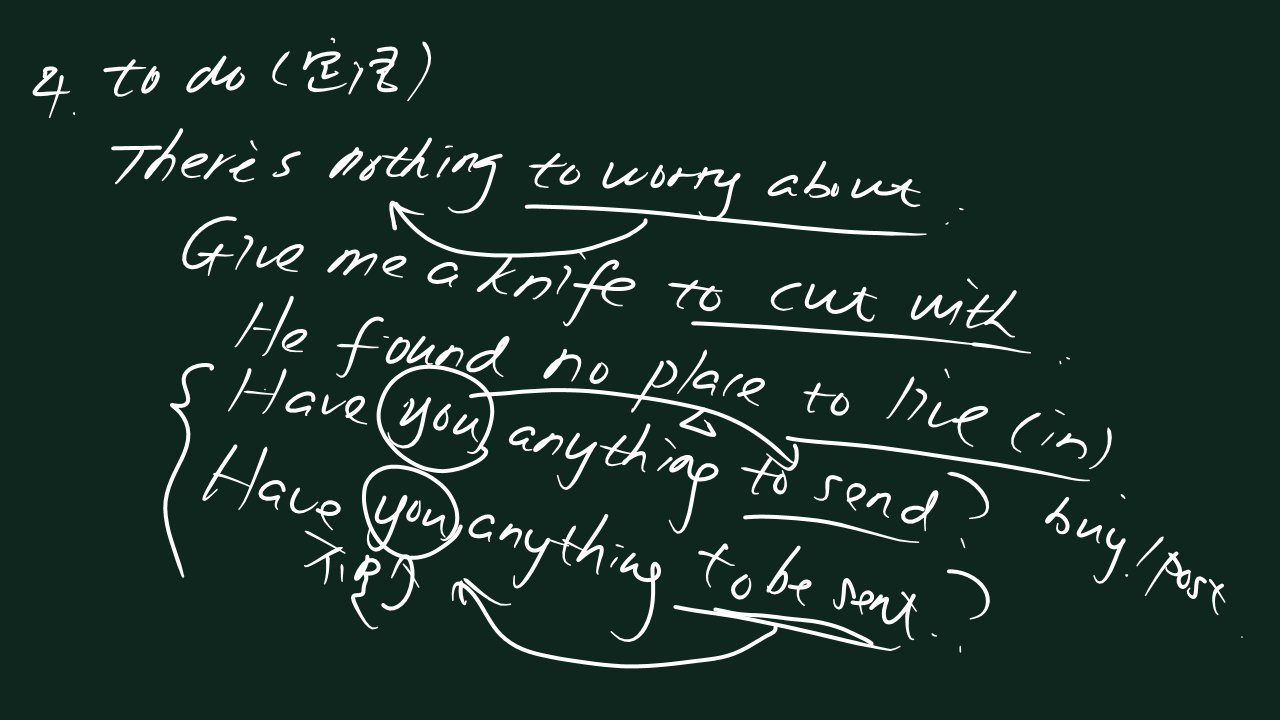 4. to do (문형)
There's nothing to worry about.
Give me a knife to cut with
He found no place to live (in)
Have you anything to send?
buy/post
Have you anything to be sent?